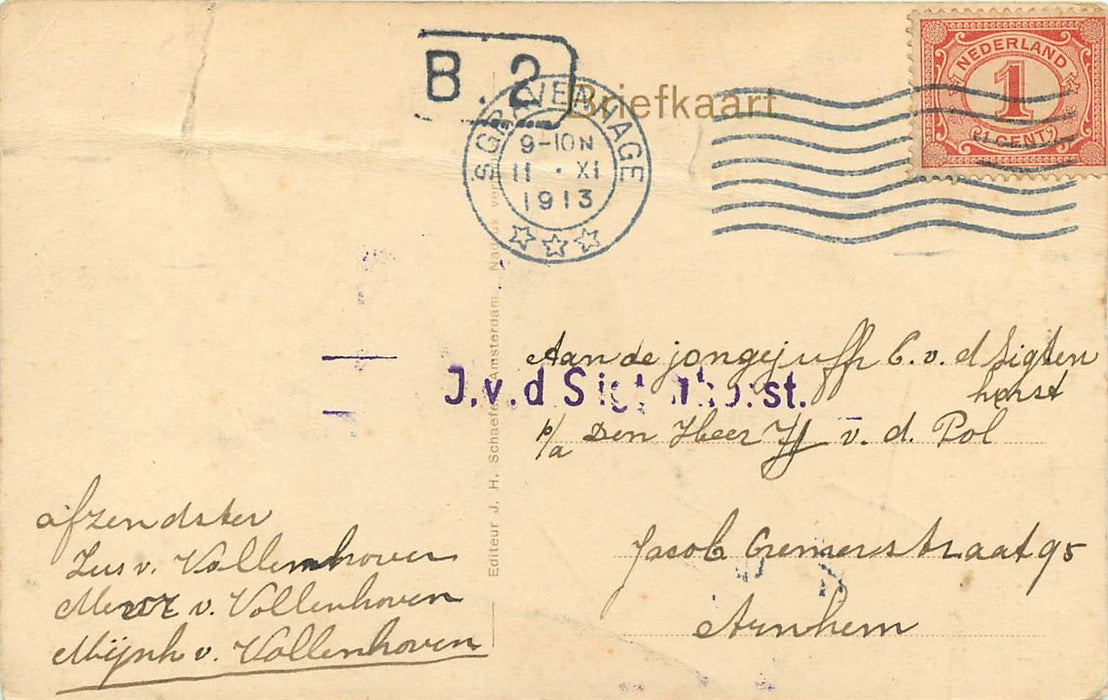 B. 2
Briefkaart
'SGRAVENHAGE
9-10N
11 · XI
1913
NEDERLAND
1
1 CENT
Aan de jongejuffr C. v. d Sigten
horst
J.v.d Sigtenhorst.
p/a Den Heer v. d. Pol
Jacob Cremerstraat 95
Arnhem
afzendster
Lus v. Vollenhoven
Mevr v. Vollenhoven
Mijnh v. Vollenhoven
Editeur J. H. Schaefer Amsterdam